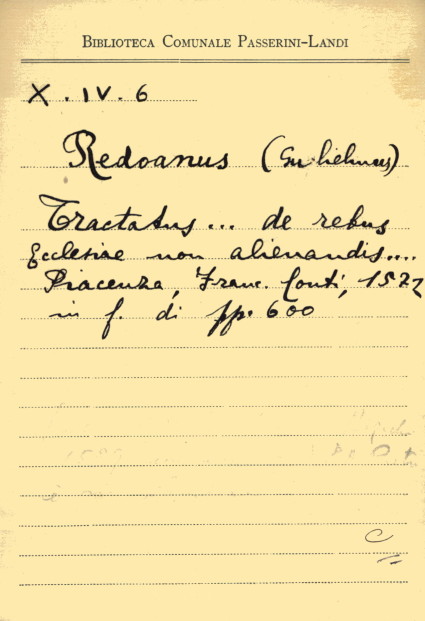 BIBLIOTECA COMUNALE PASSERINI-LANDI
X. IV. 6
Redoanus (Guilielmus)
Tractatus... de rebus
Ecclesiae non alienandis....
Piacenza, Franc. Conti, 1572
in f. di pp. 600
C